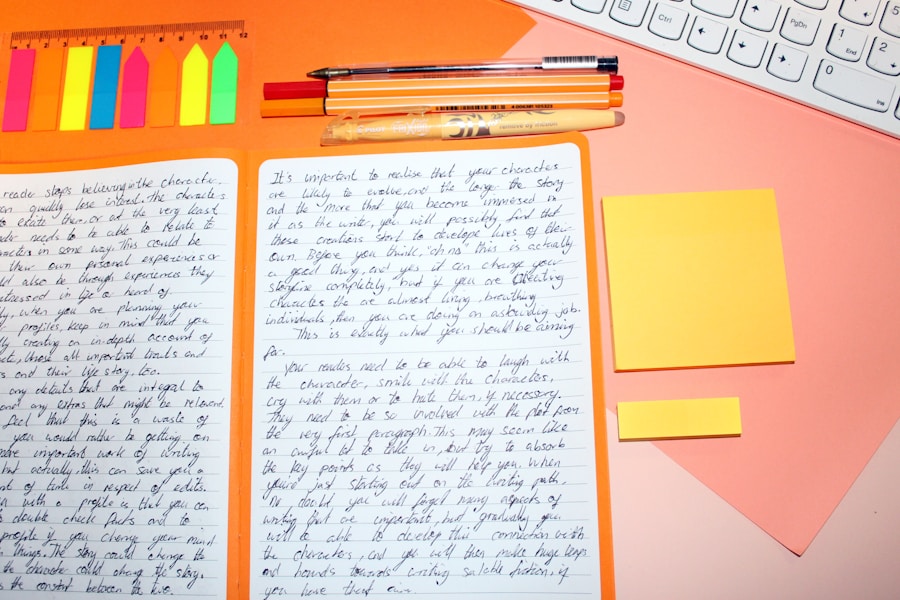 1 2 3 4 5 6 7 8 9 10 11 12
reader stops believing in the character,
quickly lose interest. The characters
to excite them, or at the very least
reader needs to be able to relate to
in some way. This could be
their own personal experiences or
also be through experiences they
witnessed in life or heard of.
when you are planning your
profiles, keep in mind that you
creating an in-depth account of
those all important traits and
and their life story, too.
any details that are integral to
and any extras that might be relevant.
feel that this is a waste of
you would rather be getting on
more important work of writing
but actually, this can save you a
of time in respect of edits.
with a profile is that you can
double check facts and to
profile if you change your mind
things. The story could change the
the character could change the story,
the constant between the two.
It's important to realise that your characters
are likely to evolve, and the longer the story
and the more that you become immersed in
it as the writer, you will possibly find that
these creations start to develop lives of their
own. Before you think, "oh no" this is actually
a good thing, and yes it can change your
storyline completely, but if you are creating
characters the are almost living, breathing
individuals, then you are doing an astounding job.
This is exactly what you should be aiming
for.
Your readers need to be able to laugh with
the character, smile with the characters,
cry with them or to hate them, if necessary.
They need to be so involved with the plot from
the very first paragraph. This may seem like
an awful lot to take in, but try to absorb
the key points as they will help you. When
you're just starting out on the writing path,
no doubt, you will forget many aspects of
writing that are important, but gradually you
will be able to develop this connection with
the characters, and you will then make huge leaps
and bounds towards writing salable fiction, if
you have that aim.
Ctrl
PgDn
1
End
2
5
0
Ins